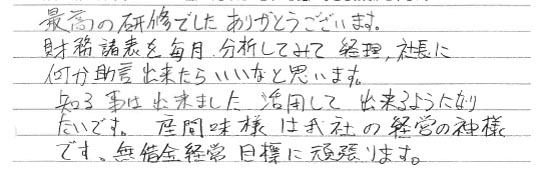 最高の研修でした ありがとうございます。
財務諸表を毎月、分析してみて 経理、社長に
何か助言出来たらいいなと思います。
知る事は出来ました 活用して 出来るようになり
たいです。 座間味様は我社の経営の神様
です、無借金経営 目標に頑張ります。